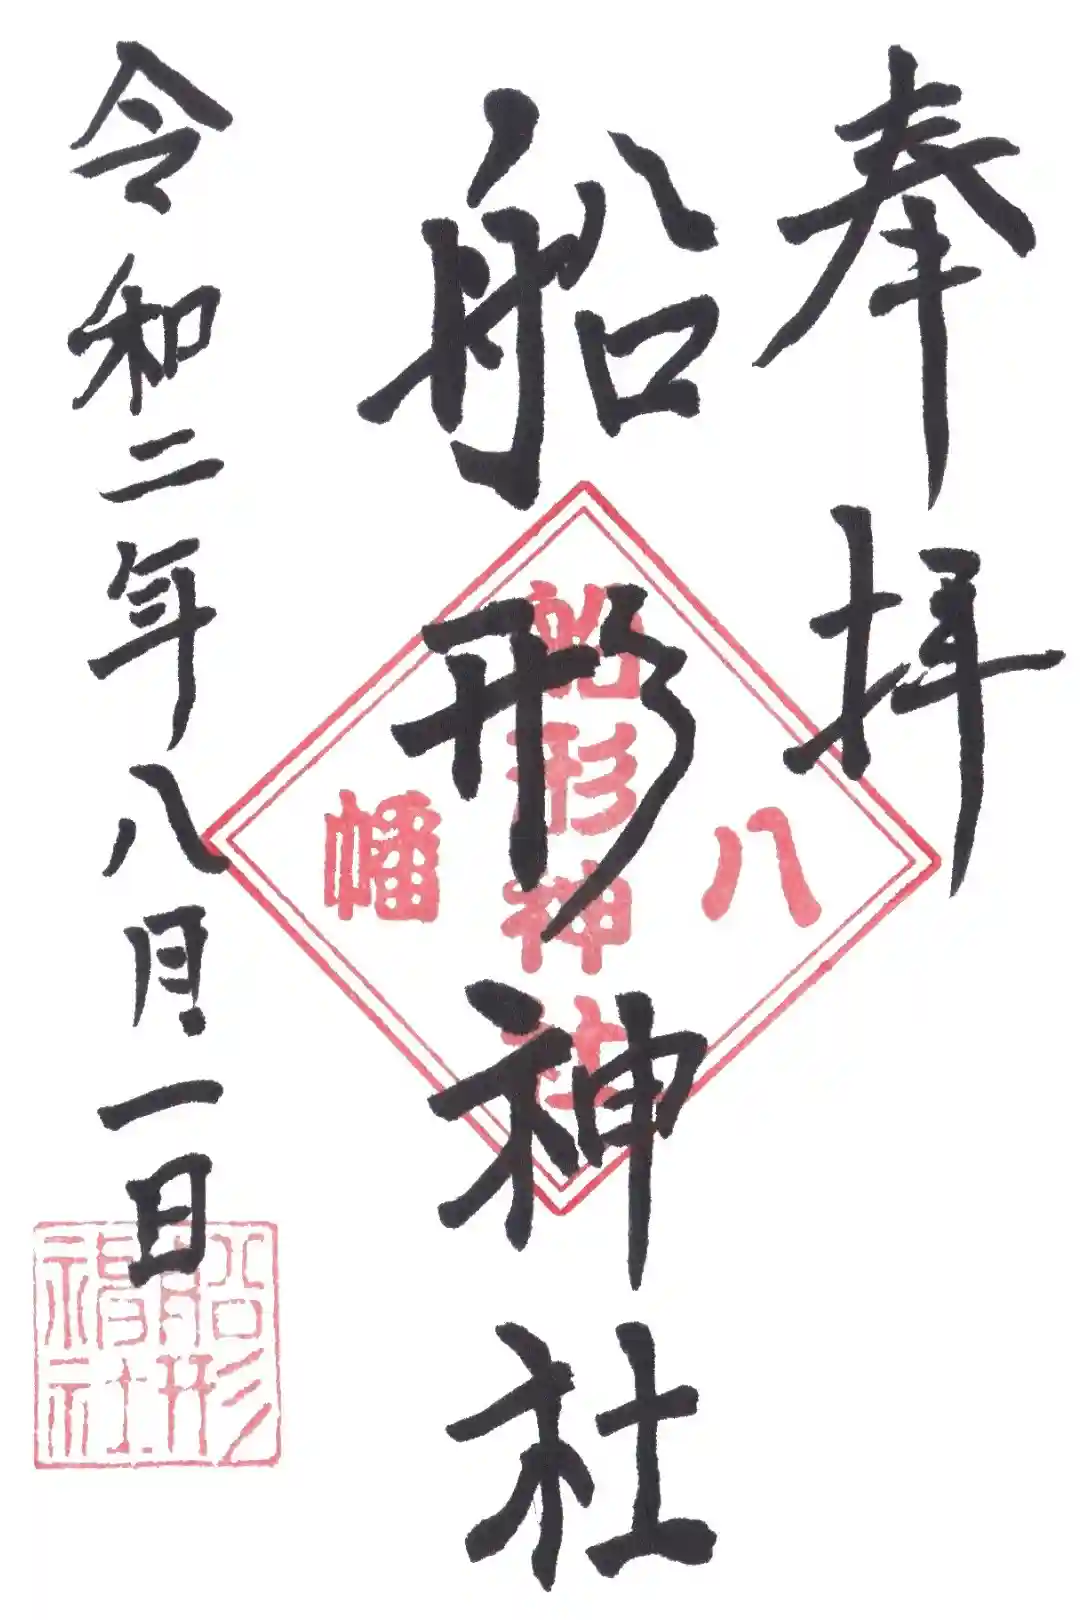 奉拝
船形神社
八
船形神社
幡
令和二年八月一日
船形
福社